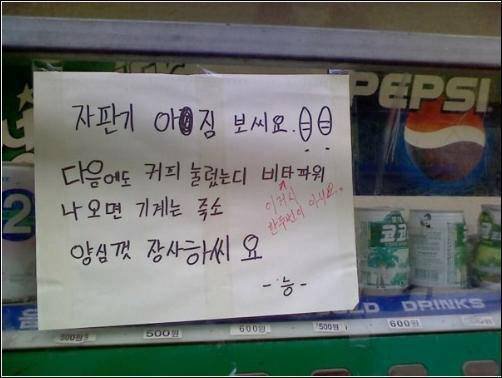 PEPSI
자판기 아짐 보씨요.
다음에도 커피 눌렀는디 비타파워
이거시 한두번이 아니요..
나오면 기계는 죽소
양심껏 장사하씨요
-능-
코코
2
DRINKS
500원 500원 600원 500원 600원